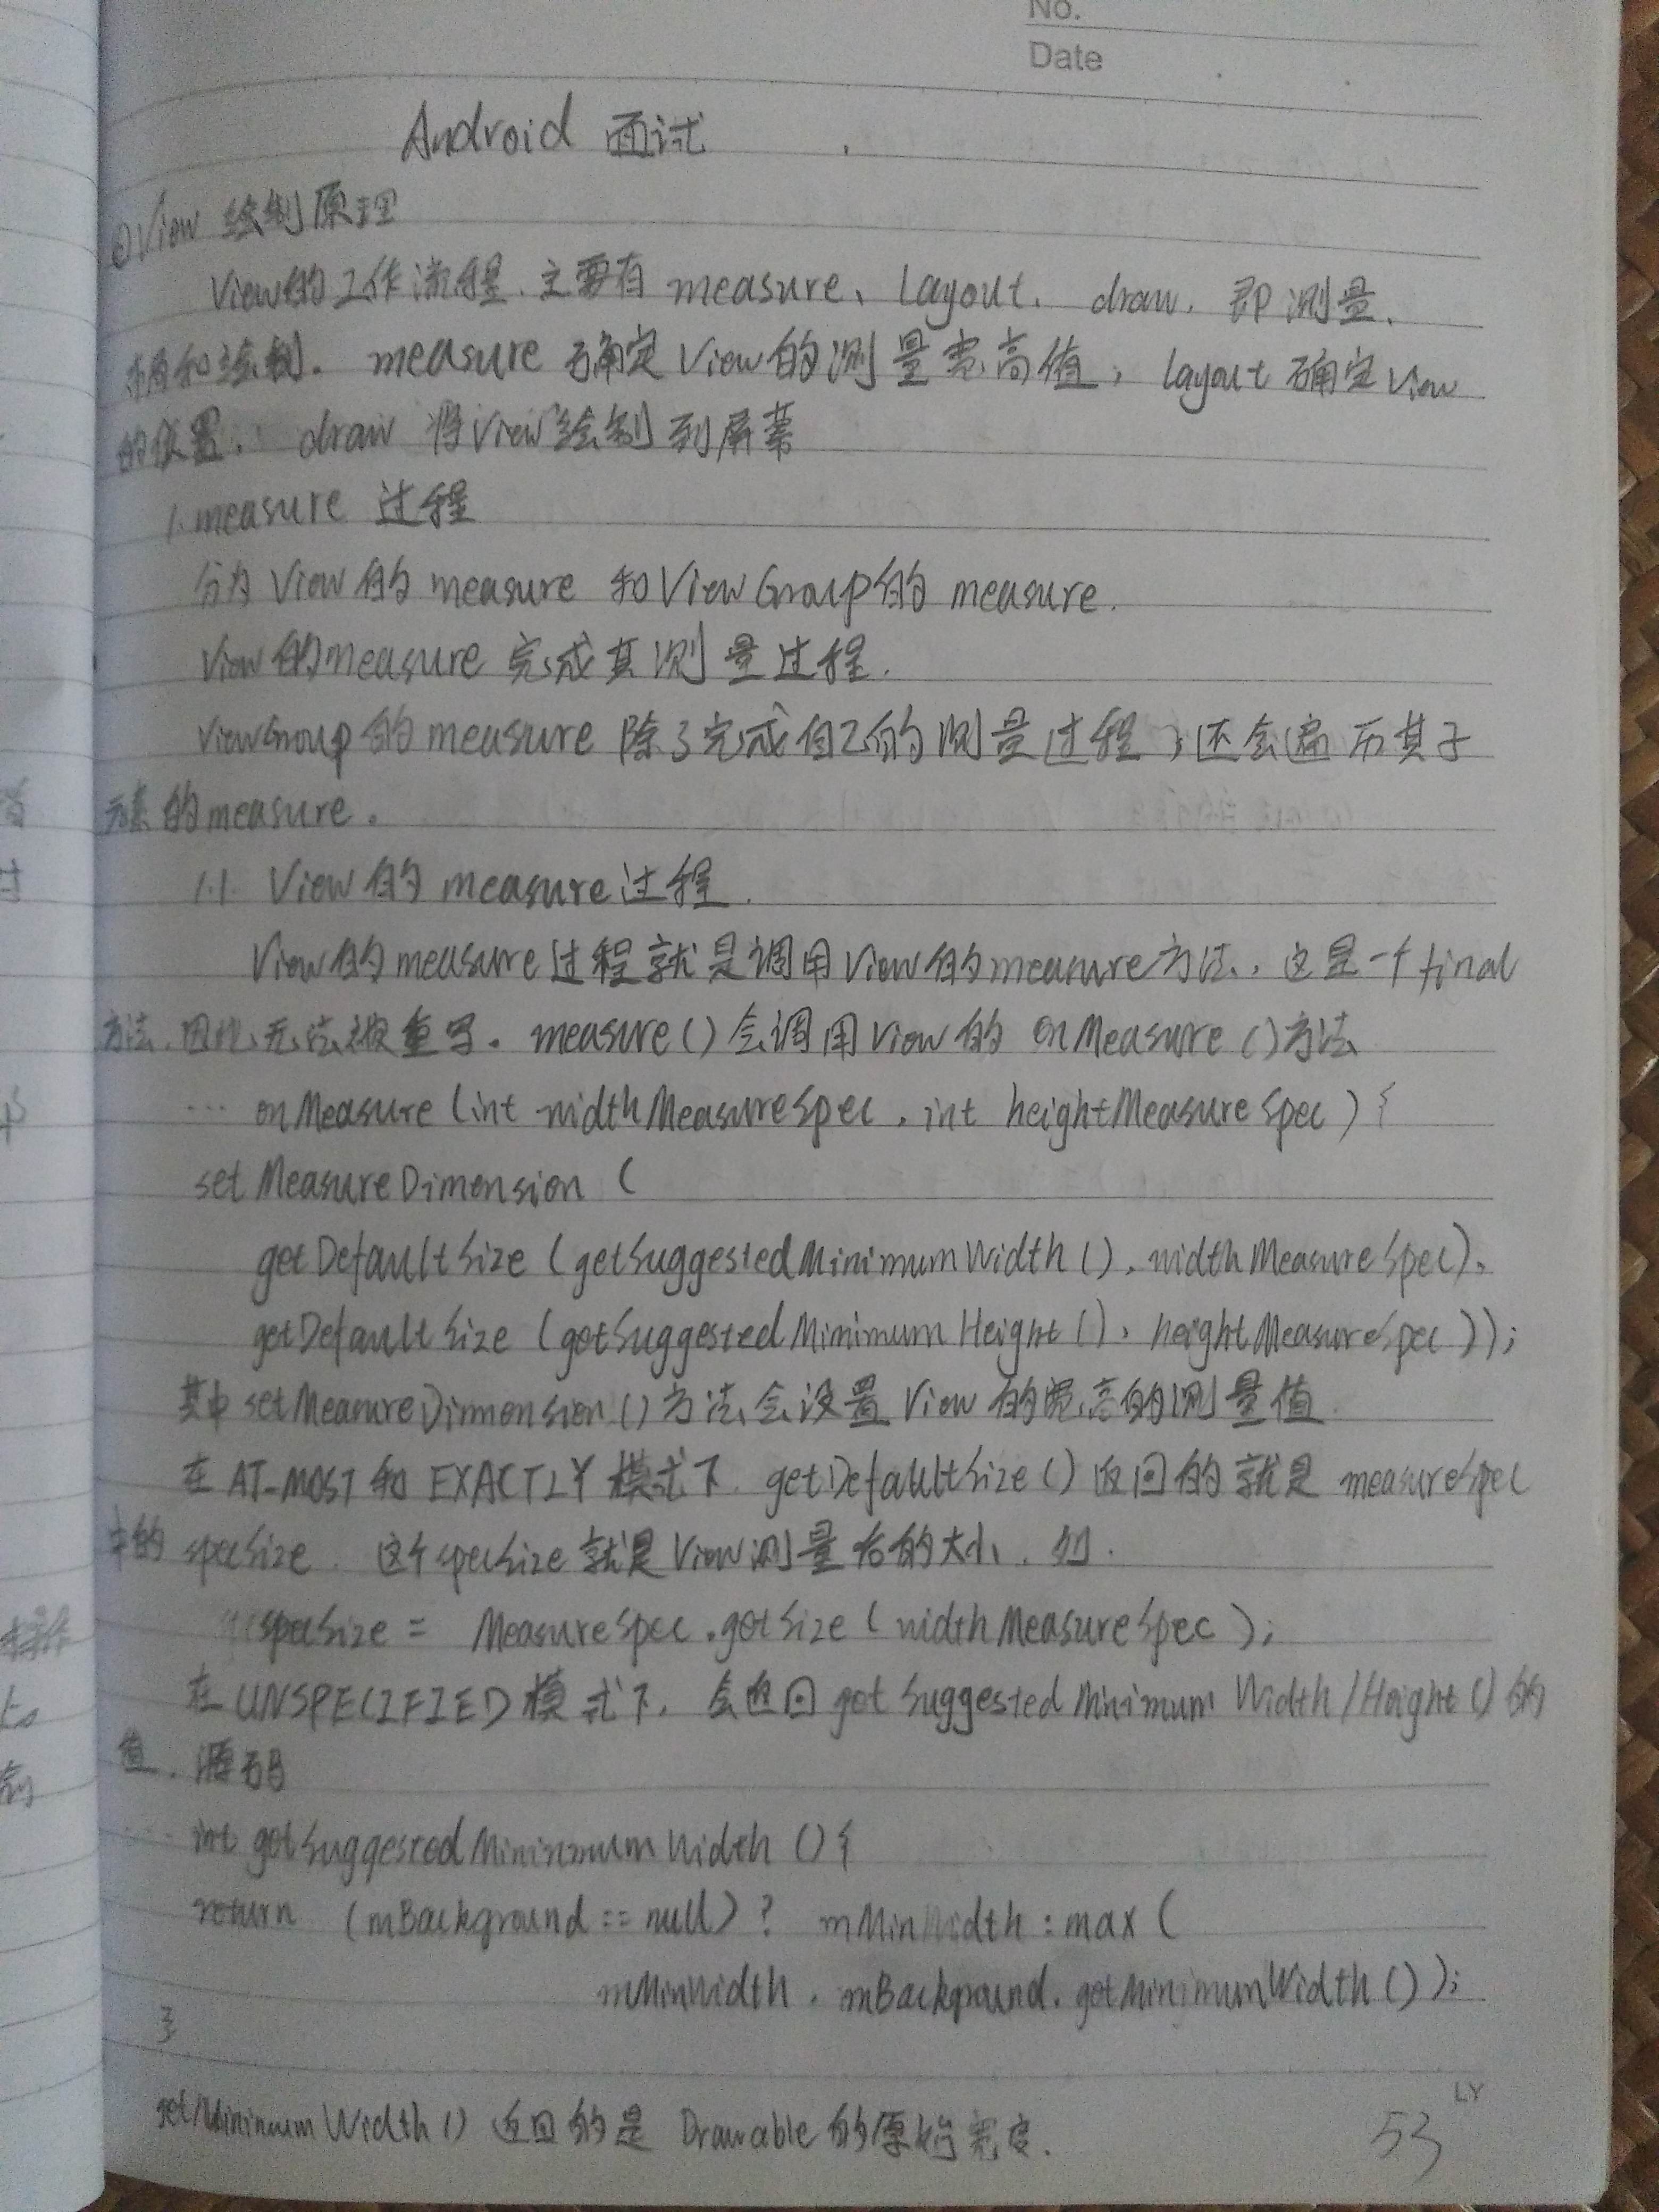 No.
Date
Android 面试
①View 绘制原理
View的工作流程、主要有 measure、layout、draw, 即测量、
布局和绘制. measure 确定View的测量宽高值, layout 确定View
的位置. draw 将View绘制到屏幕
1. measure 过程
分为 View 的 measure 和 ViewGroup的 measure.
View 的measure 完成其测量过程.
ViewGroup的measure 除了完成自己的测量过程,还会遍历其子
元素的measure.
1.1. View 的 measure过程.
View的measure过程就是调用View的measure方法. 这是一个final
方法. 因此无法被重写. measure()会调用View的 onMeasure()方法
... onMeasure (int widthMeasureSpec, int heightMeasureSpec) {
setMeasureDimension (
getDefaultSize (getSuggestedMinimumWidth(), widthMeasureSpec),
getDefaultSize (getSuggestedMinimumHeight(), heightMeasureSpec));
其中 setMeasureDimension()方法会设置View的宽高的测量值
在 AT_MOST 和 EXACTLY 模式下. getDefaultSize()返回的就是 measureSpec
中的 specSize. 这个specSize就是View测量后的大小. 如.
specSize = MeasureSpec.getSize (widthMeasureSpec);
在 UNSPECIFIED 模式下, 会返回 getSuggestedMinimum Width/Height()的
值. 源码
... int getSuggestedMininmum Width () {
return (mBackground == null) ? mMinWidth : max (
mMinWidth, mBackground.getMinimumWidth());
}
getMininumWidth() 返回的是 Drawable的原始宽度.
LY
53